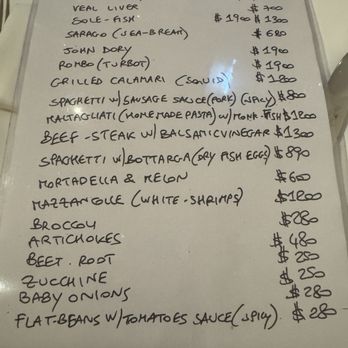 VEAL LIVER $700
SOLE-FISH $1900 $1300
SARAGO (SEA-BREAM) $680
JOHN DORY $1900
ROMBO (TURBOT) $1900
GRILLED CALAMARI (SQUID) $1200
SPAGHETTI W/SAUSAGE SAUCE (PORK) (SPICY) $800
MALTAGLIATI (HOMEMADE PASTA) W/MONK-FISH $1200
BEEF-STEAK W/BALSAMIC VINEGAR $1300
SPAGHETTI W/BOTTARGA (DRY FISH EGGS) $890
MORTADELLA & MELON $600
MAZZANCOLLE (WHITE-SHRIMPS) $1200
BROCCOLI $280
ARTICHOKES $480
BEET.ROOT $250
ZUCCHINE $250
BABY ONIONS $280
FLAT-BEANS W/TOMATOES SAUCE (SPICY). $280